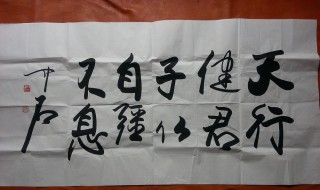 天行
健君
子以
自彊
不息
中石